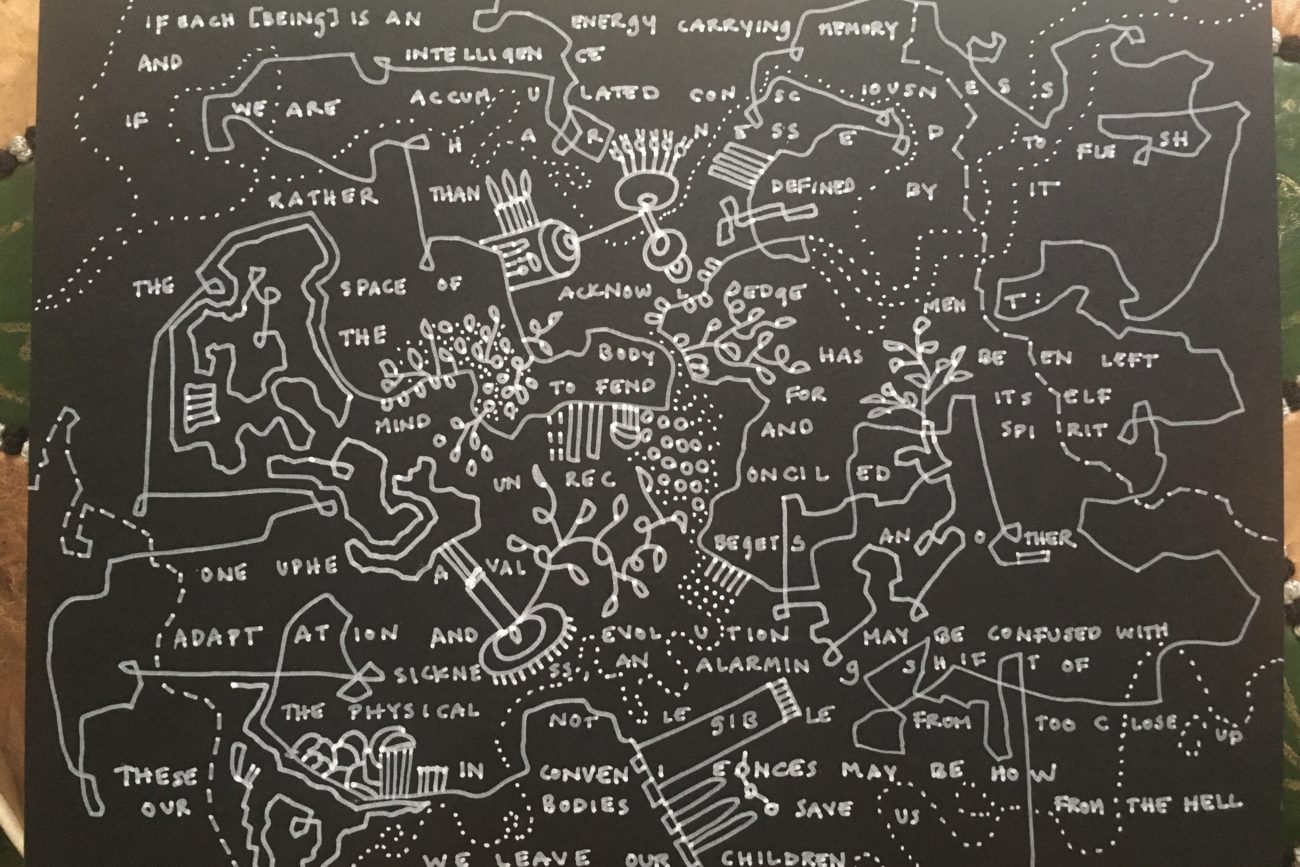 IF EACH [BEING] IS AN ENERGY CARRYING MEMORY
AND INTELLIGEN CE
IF WE ARE ACCUM U LATED CON SC IOUSN E S S
H A R N E SS E D TO FLE SH
RATHER THAN DEFINED BY IT
THE SPACE OF ACKNOW L EDGE MEN T
THE BODY HAS BE EN LEFT
TO FEND FOR ITS ELF
MIND AND SPI RIT
UN REC ONCIL ED
ONE UPHE A VAL BEGETS AN O THER
ADAPT AT ION AND EVOL U TION MAY BE CONFUSED WITH
SICKNE SS AN ALARMIN G SHIF T OF
THE PHYSICAL NOT LE GIB LE FROM TOO C LOSE UP
THESE IN CONVEN I ENCES MAY BE HOW
OUR BODIES SAVE US FROM THE HELL
WE LEAVE OUR CHILDREN